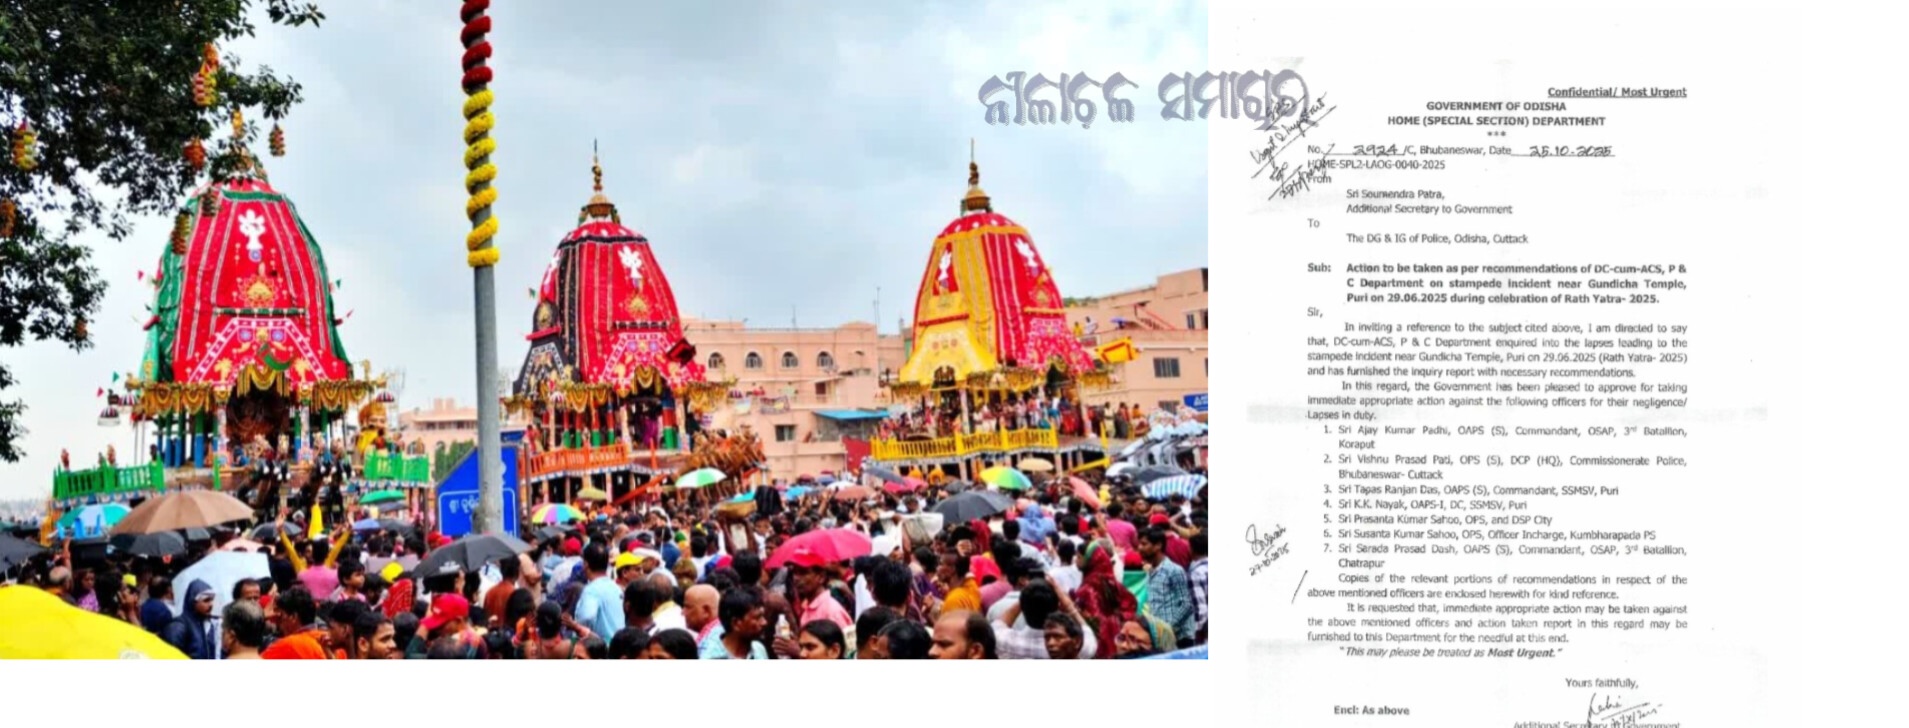 ନୀଳାଚଳ ସମାଚାର
Confidential/ Most Urgent
GOVERNMENT OF ODISHA
HOME (SPECIAL SECTION) DEPARTMENT
***
No. 2924 /C, Bhubaneswar, Date 25.10.2025
HOME-SPL2-LAOG-0040-2025
From
Sri Soumendra Patra,
Additional Secretary to Government
To
The DG & IG of Police, Odisha, Cuttack
Sub: Action to be taken as per recommendations of DC-cum-ACS, P &
C Department on stampede incident near Gundicha Temple,
Puri on 29.06.2025 during celebration of Rath Yatra- 2025.
Sir,
In inviting a reference to the subject cited above, I am directed to say
that, DC-cum-ACS, P & C Department enquired into the lapses leading to the
stampede incident near Gundicha Temple, Puri on 29.06.2025 (Rath Yatra- 2025)
and has furnished the inquiry report with necessary recommendations.
In this regard, the Government has been pleased to approve for taking
immediate appropriate action against the following officers for their negligence/
Lapses in duty.
1. Sri Ajay Kumar Padhi, OAPS (S), Commandant, OSAP, 3rd Batallion,
Koraput
2. Sri Vishnu Prasad Pati, OPS (S), DCP (HQ), Commissionerate Police,
Bhubaneswar- Cuttack
3. Sri Tapas Ranjan Das, OAPS (S), Commandant, SSMSV, Puri
4. Sri K.K. Nayak, OAPS-I, DC, SSMSV, Puri
5. Sri Prasanta Kumar Sahoo, OPS, and DSP City
6. Sri Susanta Kumar Sahoo, OPS, Officer Incharge, Kumbharapada PS
7. Sri Sarada Prasad Dash, OAPS (S), Commandant, OSAP, 3rd Batallion,
Chatrapur
Copies of the relevant portions of recommendations in respect of the
above mentioned officers are enclosed herewith for kind reference.
It is requested that, immediate appropriate action may be taken against
the above mentioned officers and action taken report in this regard may be
furnished to this Department for the needful at this end.
"This may please be treated as Most Urgent."
Yours faithfully,
Encl: As above
Additional Secretary to Government